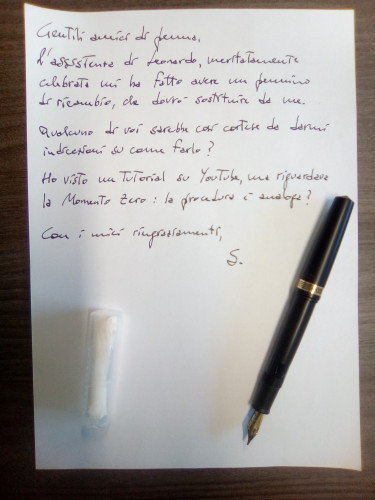 Gentili amici di penna,
l'assistenza di Leonardo, meritatamente
celebrata mi ha fatto avere un pennino
di ricambio, che dovrò sostituire da me.
Qualcuno di voi sarebbe così cortese da darmi
indicazioni su come farlo?
Ho visto un tutorial su YouTube, ma riguardava
la Momento Zero: la procedura è analoga?
Con i miei ringraziamenti,
S.